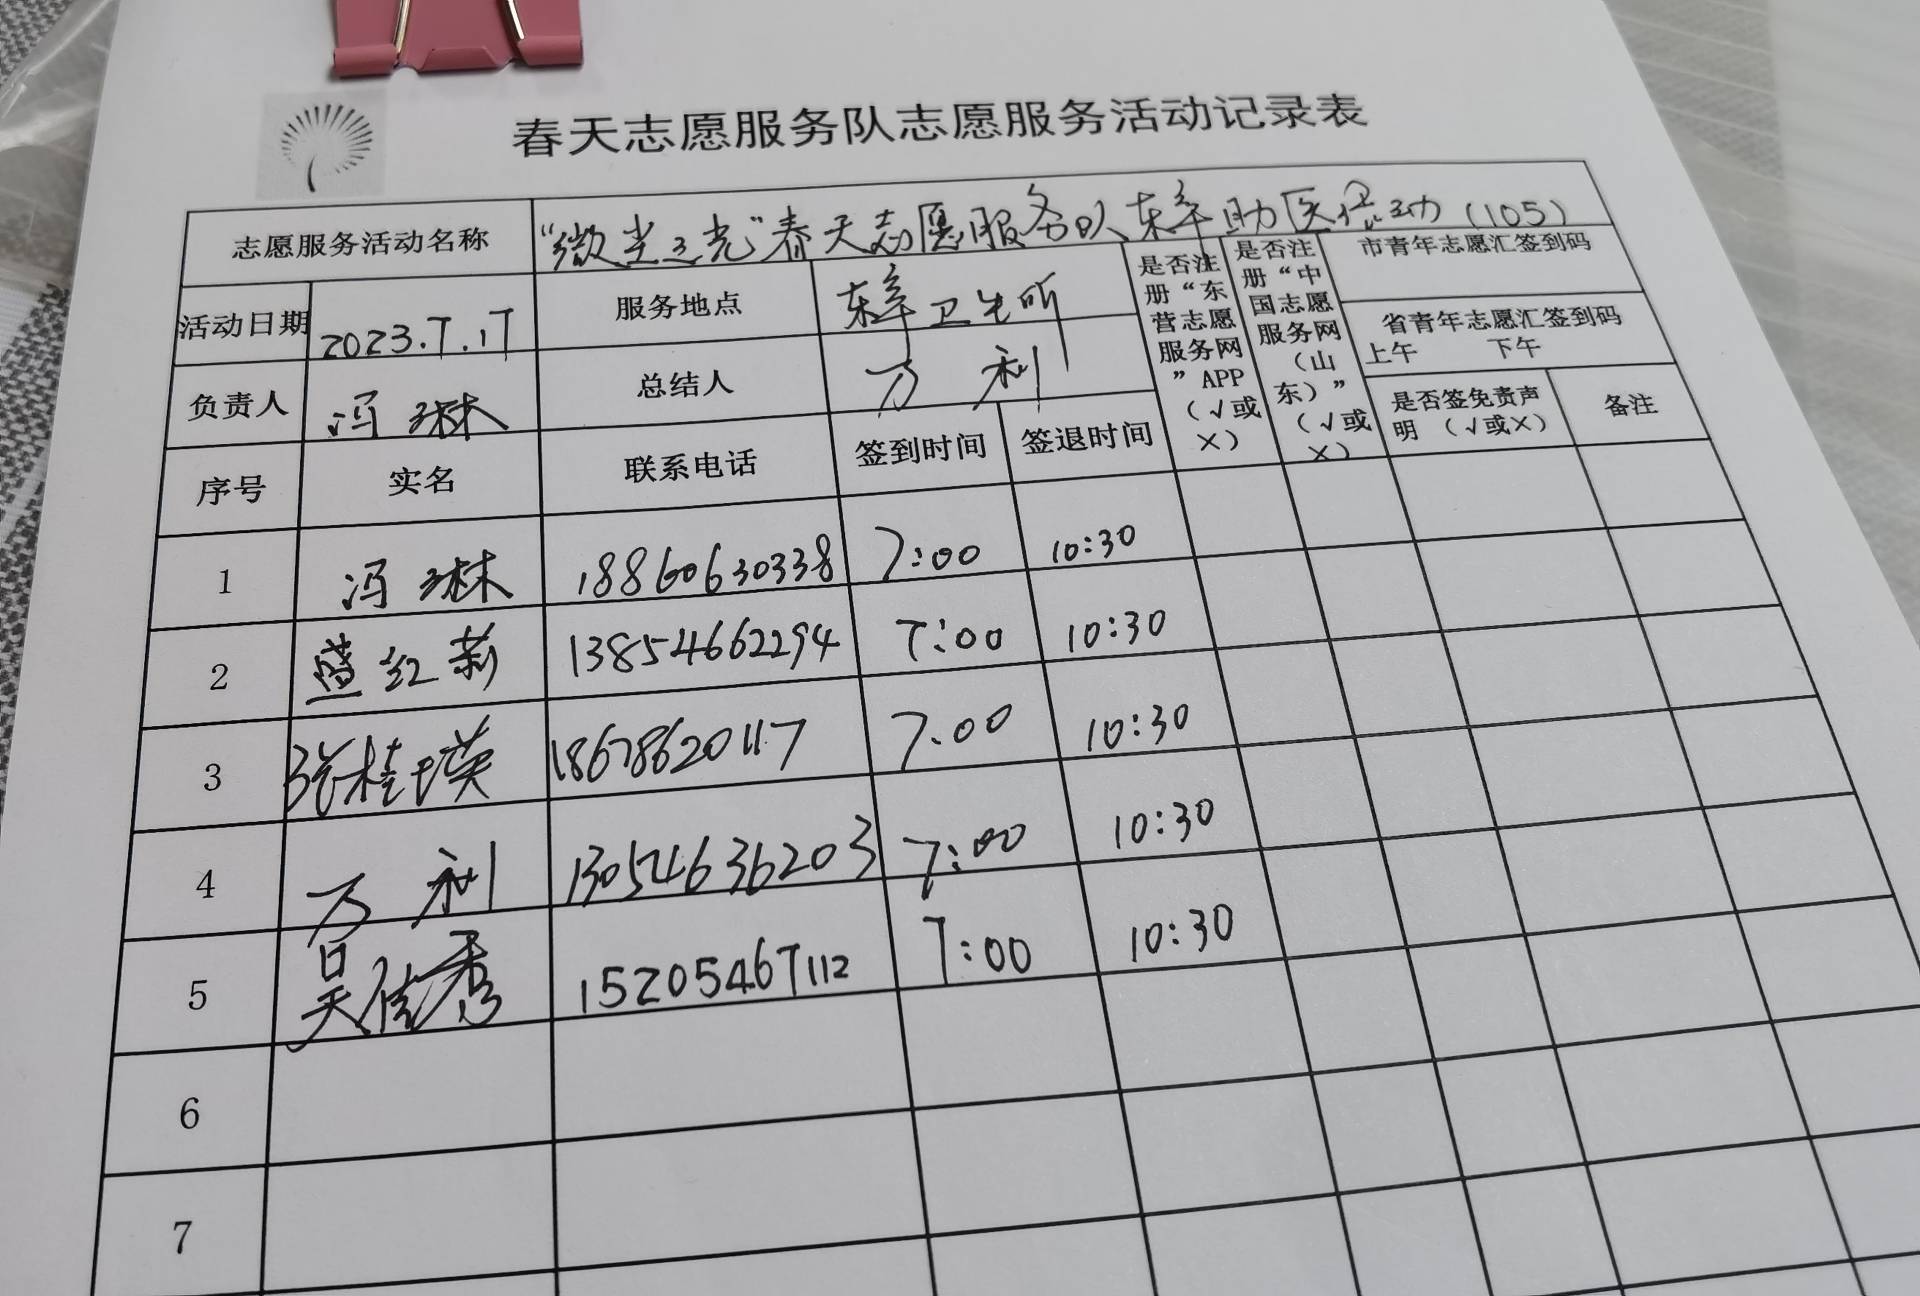 春天志愿服务队志愿服务活动记录表
志愿服务活动名称 “微尘之光”春天志愿服务队东辛助医活动(105)
活动日期 2023.7.17 服务地点 东辛卫生所
是否注册“东营志愿服务网”APP(√或×)
是否注册“中国志愿服务网(山东)”(√或×)
市青年志愿汇签到码
省青年志愿汇签到码
上午 下午
负责人 冯琳 总结人 万利
是否签免责声明 (√或×) 备注
序号 实名 联系电话 签到时间 签退时间
1 冯琳 18860630338 7:00 10:30
2 盖红莉 13854662294 7:00 10:30
3 张桂瑛 18678620117 7.00 10:30
4 万利 13054636203 7:00 10:30
5 吴佳秀 15205467112 7:00 10:30
6
7